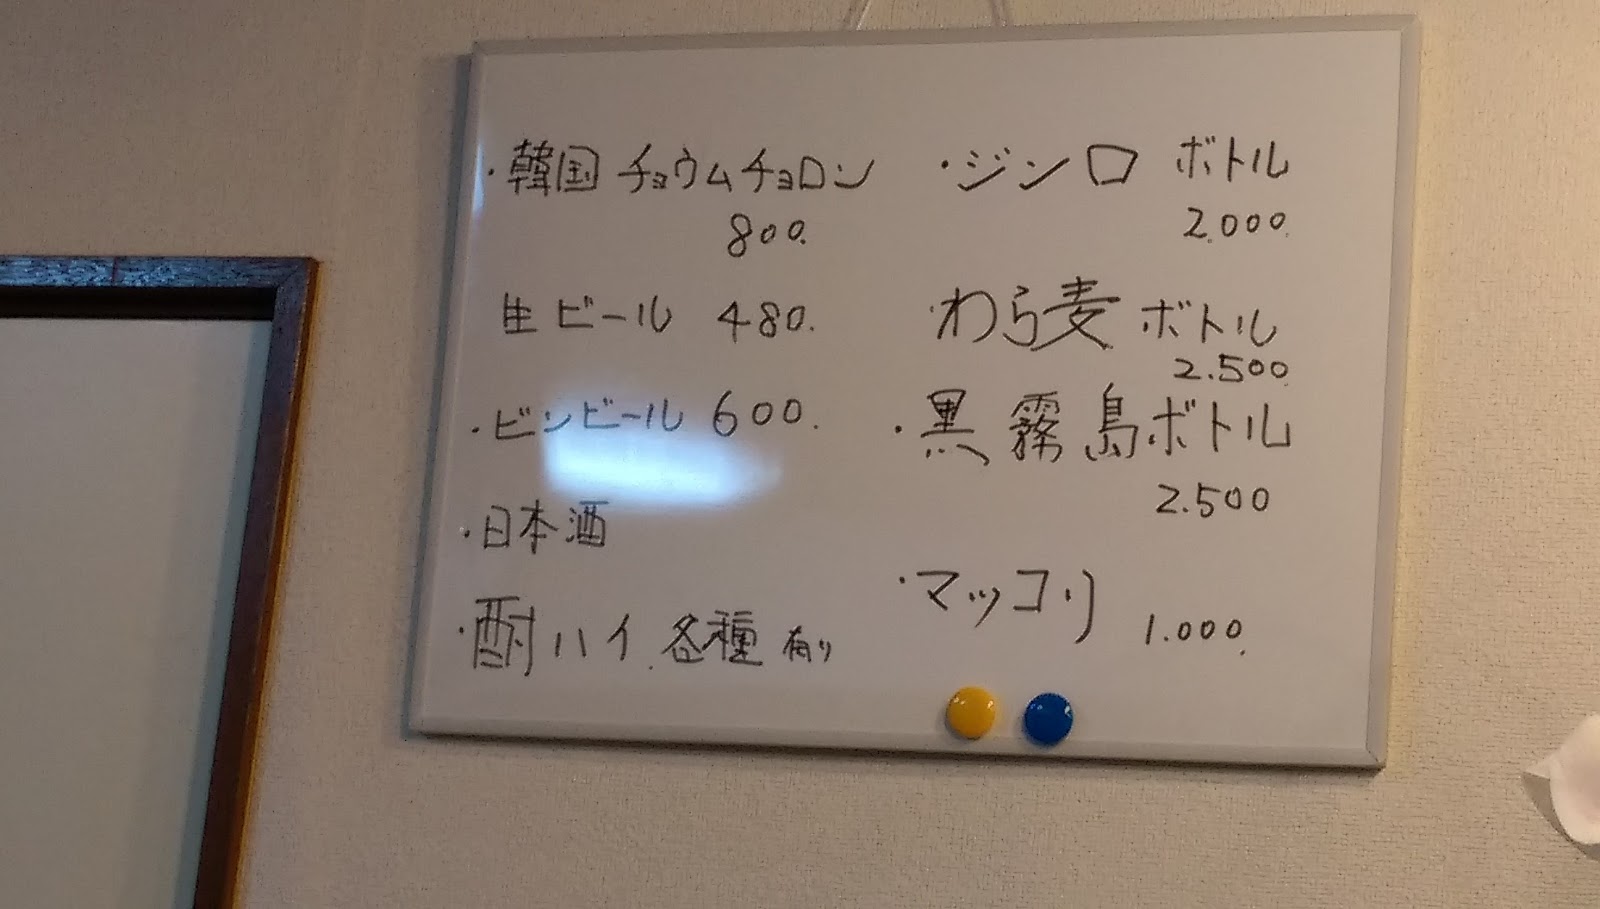 ・韓国 チョウムチョロン
800.
生ビール 480.
・ビンビール 600.
・日本酒
・酎ハイ 各種 有り
・ジンロ ボトル
2.000.
・わら麦 ボトル
2.500
・黒霧島ボトル
2.500
・マッコリ
1.000.